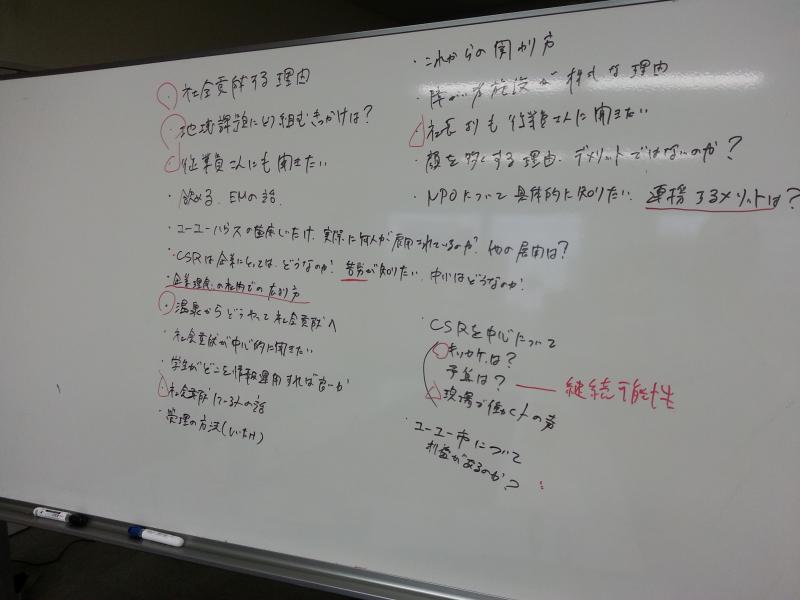 ・社会貢献する理由
・地域課題にとり組むきっかけは?
・従業員さんにも聞きたい
・飲める、EMの話
・ユーユーハウスの菌床しいたけ、実際に何人が雇用されているのか?他の雇用は?
・CSRは企業にとっては、どうなのか?苦労が知りたい、中小はどうなのか?
・企業理念の社内での広がり方
・温泉からどうやって社会貢献へ
・社会貢献が中心的に聞きたい
・学生がどこを情報運用すれば良いか
・社会貢献している人の話
・管理の方法(しいたけ)
・これからの関わり方
・障がい者施設が株式な理由
・社長よりも従業員さんに聞きたい
・顔を多くする理由、デメリットではないのか?
・NPOについて具体的に知りたい、連携するメリットは?
・CSRを中心について
キッカケは?
予算は? ― 継続可能性
現場で働く人の声
・ユーユー市について
利益があるのか?